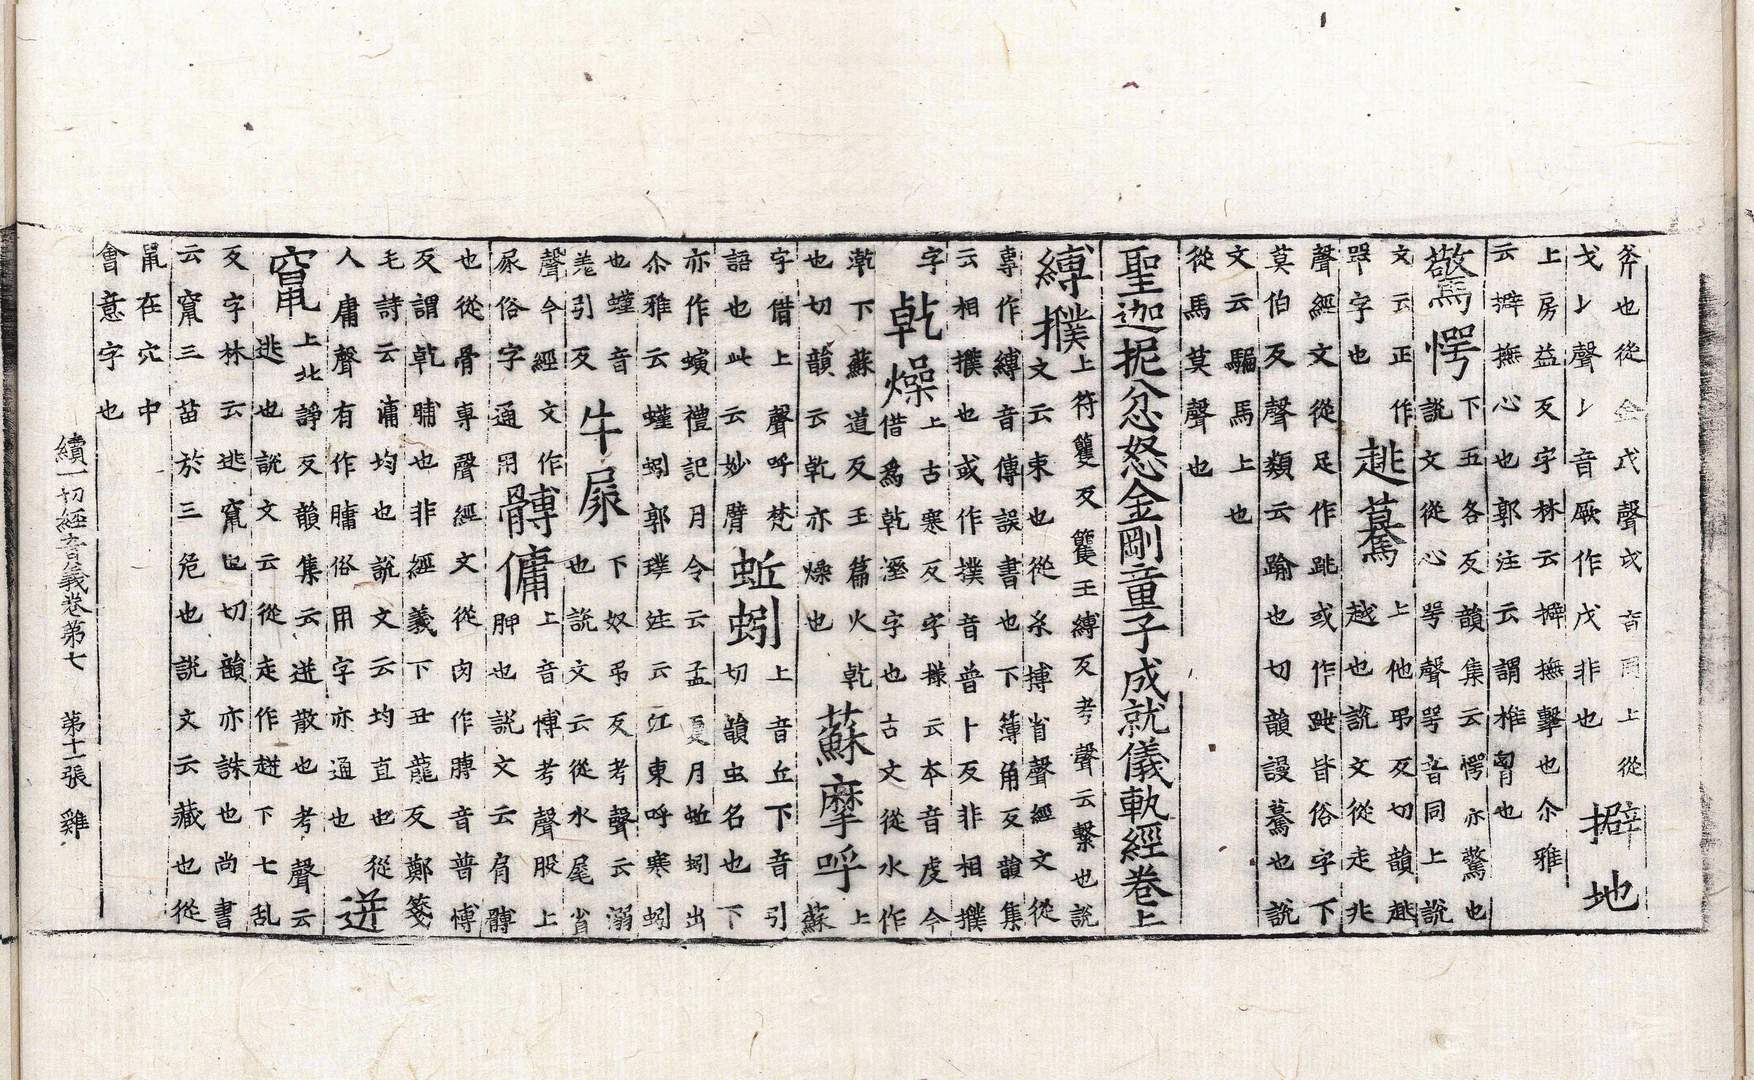 斧也從金戉聲戉音同上從
戈𠄌聲𠄌音厥作戊非也
擗地
上房益反字林云擗撫擊也尒雅
云擗撫心也郭注云謂椎胷也
驚愕
下五各反韻集云愕亦驚也
說文從心咢聲咢音同上說
文云正作
咢字也
趒驀
上他弔反切韻趒
越也說文從走兆
聲經文從足作跳或作趠皆俗字下
莫伯反聲類云踰也切韻謾驀也說
文云騙馬上也
從馬莫聲也
聖迦抳忿怒金剛童子成就儀軌經卷上
縛撲
上符籰反籰王縛反考聲云繫也說
文云束也從糸博省聲經文從
專作縳音傳誤書也下蒲角反韻集
云相撲也或作撲音普卜反非相撲
字
乾燥
上古寒反字樣云本音虔今
借為乾溼字也古文從水作
漧下蘇道反玉篇火乾
也切韻云乾亦燥也
蘇摩呼
上
蘇
字借上聲呼梵
語也此云妙臂
蚯蚓
上音丘下音引
切韻虫名也下
亦作螾禮記月令云孟夏月蚯蚓出
尒雅云螼蚓郭璞注云江東呼寒蚓
也螼音
羌引反
牛尿
下奴弔反考聲云溺
也說文云從水尾省
聲今經文作
尿俗字通用
髆傭
上音博考聲股上
胛也說文云肩髆
也從骨尃聲經文從肉作膊音普博
反謂乾脯也非經義下丑龍反鄭箋
毛詩云傭均也說文云均直也從
人庸聲有作𦟛俗用字亦通也
迸竄
上北諍反韻集云迸散也考聲云
逃也說文云從走作趀下七乱
反字林云逃竄也切韻亦誅也尚書
云竄三苗於三危也說文云藏也從
鼠在穴中
會意字也
續一切經音義卷第七 第十一張 雞